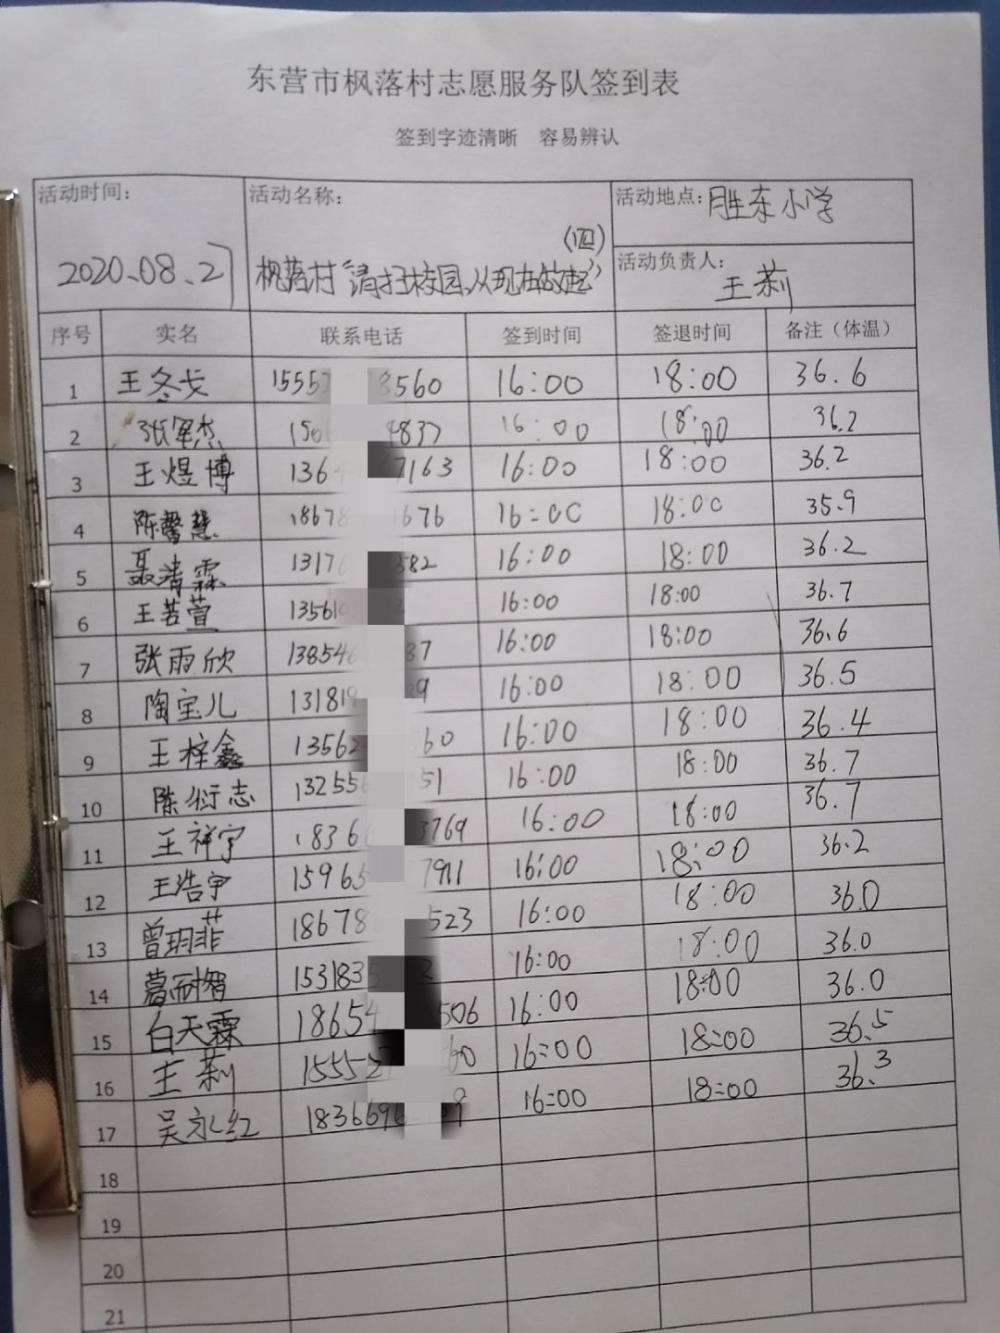 东营市枫落村志愿服务队签到表
签到字迹清晰 容易辨认
活动时间： 活动名称： 活动地点：胜东小学
2020.08.27 枫落村“清扫校园、从现在做起”(四) 活动负责人：王莉
序号 实名 联系电话 签到时间 签退时间 备注（体温）
1 王冬戈 1555 8560 16:00 18:00 36.6
2 张军杰 150 4837 16:00 18:00 36.2
3 王煜博 136 7163 16:00 18:00 36.2
4 陈馨慧 18678 1676 16:00 18:00 35.9
5 聂清霖 1317 582 16:00 18:00 36.2
6 王若萱 13561 2 16:00 18:00 36.7
7 张雨欣 138546 87 16:00 18:00 36.6
8 陶宝儿 131819 09 16:00 18:00 36.5
9 王梓鑫 13562 60 16:00 18:00 36.4
10 陈衍志 132556 51 16:00 18:00 36.7
11 王祥宇 1836 3769 16:00 18:00 36.7
12 王浩宇 15965 7911 16:00 18:00 36.2
13 曾玥菲 18678 523 16:00 18:00 36.0
14 葛耐智 153183 2 16:00 18:00 36.0
15 白天霖 18654 506 16:00 18:00 36.0
16 王莉 15552 60 16:00 18:00 36.5
17 吴永红 1836696 9 16:00 18:00 36.3
18
19
20
21